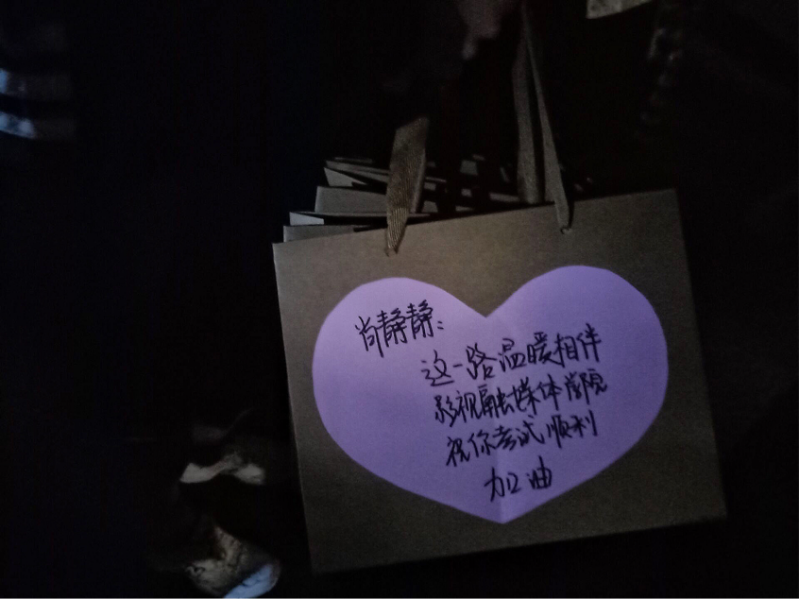 尚静静：
这一路温暖相伴
影视融媒体学院
祝你考试顺利
加油